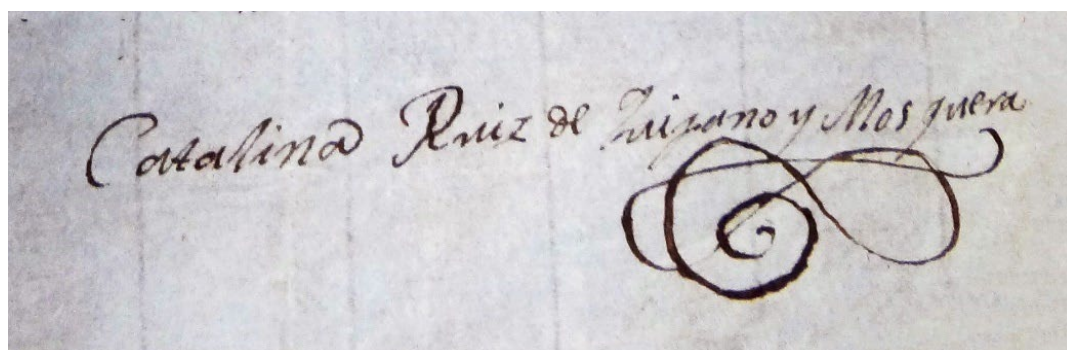 Catalina Ruiz de Luizano y Mosquera